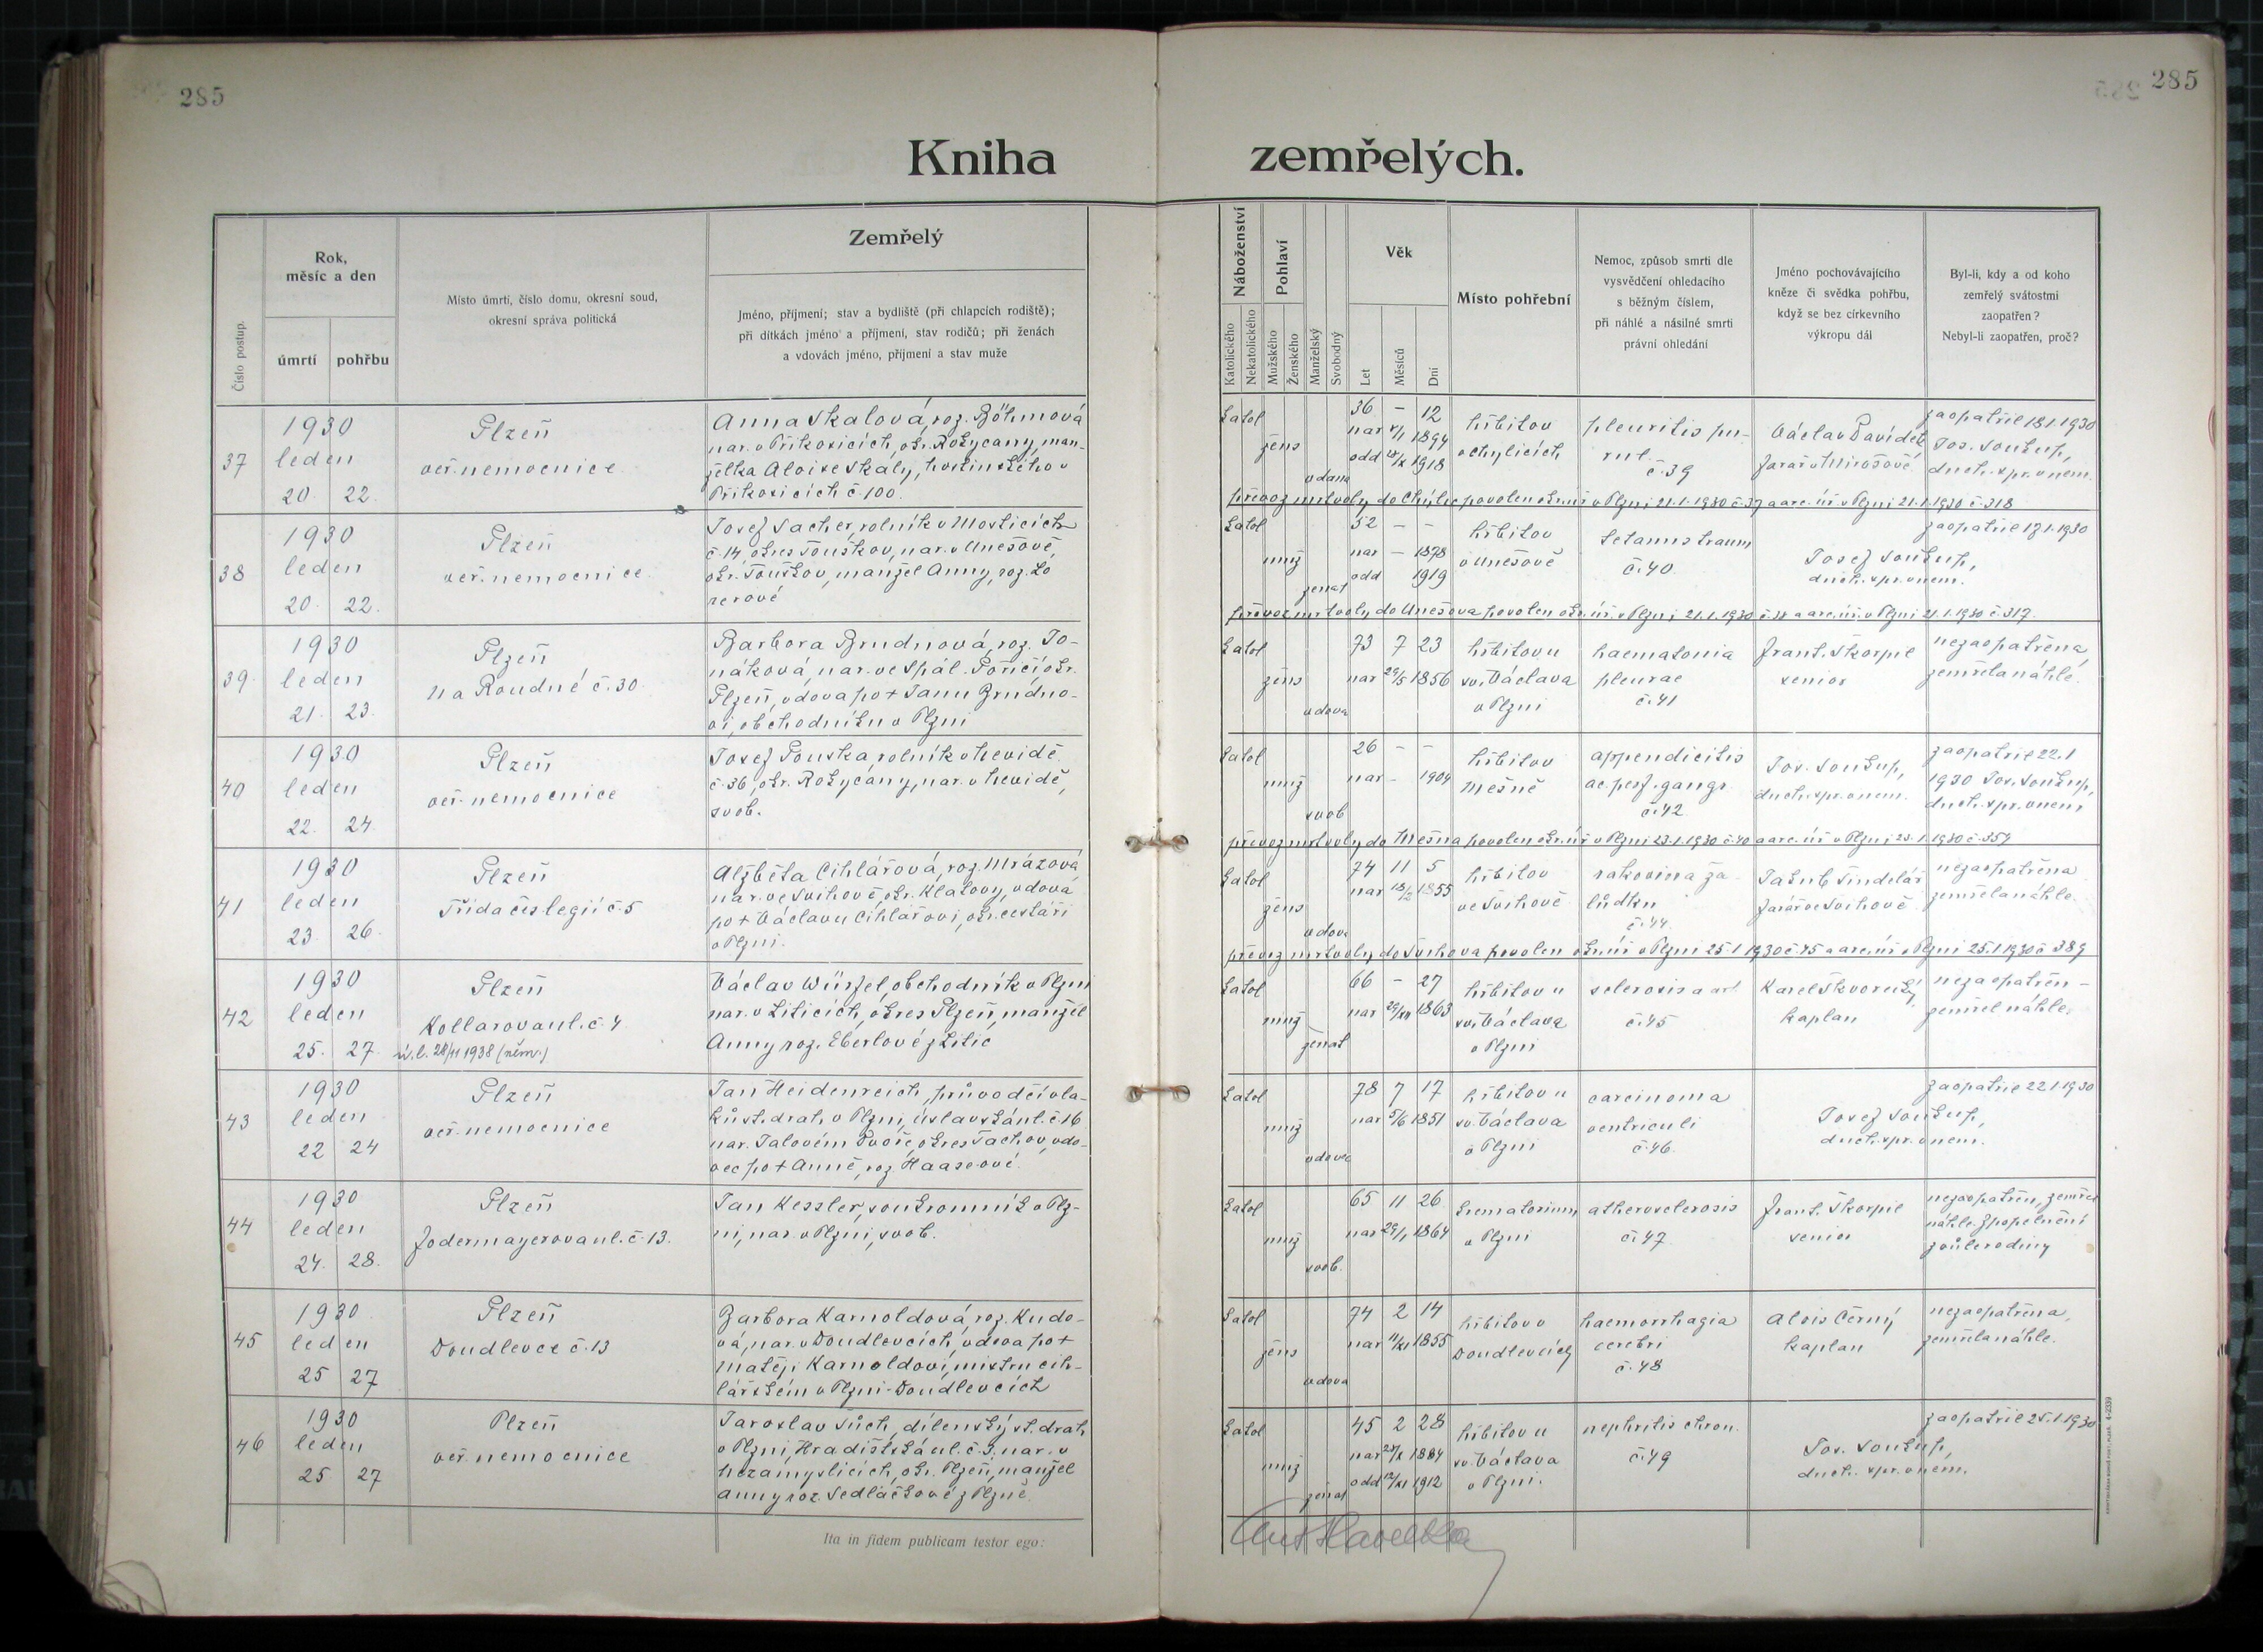 285
285
Kniha zemřelých.
Číslo postup.
Rok,
měsíc a den
úmrtí
pohřbu
Místo úmrtí, číslo domu, okresní soud,
okresní správa politická
Zemřelý
Jméno, příjmení; stav a bydliště (při chlapcích rodiště);
při dítkách jméno a příjmení, stav rodičů; při ženách
a vdovách jméno, příjmení a stav muže
Náboženství
Katolického
Nekatolického
Pohlaví
Mužského
Ženského
Manželský
Svobodný
Věk
Let
Měsíců
Dní
Místo pohřební
Nemoc, způsob smrti dle
vysvědčení ohledacího
s běžným číslem,
při náhlé a násilné smrti
právní ohledání
Jméno pochovávajícího
kněze či svědka pohřbu,
když se bez církevního
výkropu dál
Byl-li, kdy a od koho
zemřelý svátostmi
zaopatřen?
Nebyl-li zaopatřen, proč?
37
1930
leden
20. 22.
Plzeň
veř. nemocnice
Anna Skalová, roz. Böhmová
nar. v Příkosicích, okr. Rokycany, man-
želka Aloise Skaly, hostinského v
Příkosicích č. 100.
katol
žens
vdaná
36 - 12
nar 1894
odd 1918
hřbitov
v Chylicích
pleuritis pu-
rul.
č. 39
Václav Davídek
farář v Mirošově
zaopatřil 18.1.1930
Jos. Soukup,
duch. spr. v nem.
převoz mrtvoly do Chylic povolen okr. úř. v Plzni 21.1.1930 č. 37 a arc. úř. v Plzni 21.1.1930 č. 318
38
1930
leden
20. 22.
Plzeň
veř. nemocnice
Josef Sacher, rolník v Mosticích
č. 14, okres Touškov, nar. v Únešově,
okr. Touškov, manžel Anny, roz. Lo
rerové
katol
muž
ženat
52 - -
nar - 1878
odd 1919
hřbitov
v Únešově
Tetanus traum
č. 40.
Josef Soukup,
duch. spr. v nem.
zaopatřil 17.1.1930
převoz mrtvoly do Únešova povolen okr. úř. v Plzni 21.1.1930 č. 38 a arc. úř. v Plzni 21.1.1930 č. 317.
39.
1930
leden
21. 23.
Plzeň
na Roudné č. 30.
Barbora Brudnová, roz. Jo-
náková, nar. ve Spál. Poříčí, okr.
Plzeň, vdova po + Janu Brudno-
vi, obchodníku v Plzni
katol
žens
vdova
73 7 23
nar 29/5 1856
hřbitov u
sv. Václava
v Plzni
haematonia
pleurae
č. 41
Frant. Škorpil
senior
nezaopatřena
zemřela náhle.
40
1930
leden
22. 24.
Plzeň
veř. nemocnice
Josef Pouska, rolník v Nevidě
č. 36, okr. Rokycany, nar. v Nevidě,
svob.
katol
muž
svob
26 - -
nar - 1904
hřbitov
Mešně
appendicitis
ac. perf. gangr.
č. 42
Jos. Soukup,
duch. spr. v nem.
zaopatřil 22.1
1930 Jos. Soukup,
duch. spr. v nem.
převoz mrtvoly do Mešna povolen okr. úř. v Plzni 23.1.1930 č. 40 a arc. úř. v Plzni 23.1.1930 č. 354
41
1930
leden
23. 26.
Plzeň
Třída čes legií č. 5
Alžběta Cihlářová, roz. Mrázová
nar. ve Švihově, okr. Klatovy, vdova
po + Václavu Cihlářovi, okr. cestáři
v Plzni.
katol
žens
vdova
74 11 5
nar 18/2 1855
hřbitov
ve Švihově
rakovina ža-
lůdku
č. 44.
Jakub Šindelář
farář ve Švihově
nezaopatřena
zemřela náhle.
převoz mrtvoly do Švihova povolen okr. úř. v Plzni 25.1 1930 č. 45 a arc. úř. v Plzni 25.1.1930 č. 389
42
1930
leden
25. 27.
Plzeň
Kollarova ul. č. 4
ú. l. 28/11 1938 (něm.)
Václav Würfel, obchodník v Plzni
nar. v Liticích, okres Plzeň, manžel
Anny roz. Eberlové z Litic
katol
muž
ženat
66 - 27
nar 29/XII 1863
hřbitov u
sv. Václava
v Plzni
sclerosis a art
č. 45
Karel Škvorecký
kaplan
nezaopatřen -
zemřel náhle.
43
1930
leden
22 24
Plzeň
veř. nemocnice
Jan Heidenreich, průvodčí vla-
ků st. drah, v Plzni, Úslavská ul. č. 16
nar. Jalovém Dvoře, okres Tachov, vdo-
vec po + Anně, roz. Haaseové.
katol
muž
vdovec
78 7 17
nar 5/6 1851
hřbitov u
sv. Václava
v Plzni
carcinoma
ventriculi
č. 46.
Josef Soukup,
duch. spr. v nem.
zaopatřil 22.1.1930
44
1930
leden
24. 28.
Plzeň
Jodermayerova ul. č. 13.
Jan Kessler, soukromník v Plz-
ni, nar. v Plzni, svob.
katol
muž
svob.
65 11 26
nar 29/1 1864
krematorium
v Plzni
atherosclerosis
č. 47
Frant. Škorpil
senior
nezaopatřen, zemřel
náhle. Zpopelnění
z vůle rodiny
45
1930
leden
25 27
Plzeň
Doudlevce č. 13
Barbora Karnoldová, roz. Kudo-
vá, nar. v Doudlevcích, vdova po +
Matěji Karnoldovi, mistru cih-
lářském v Plzni-Doudlevcích
katol
žens
vdova
74 2 14
nar 11/XI 1855
hřbitov v
Doudlevcích
haemorrhagia
cerebri
č. 48
Alois Černý
kaplan
nezaopatřena,
zemřela náhle.
46
1930
leden
25 27
Plzeň
veř. nemocnice
Jaroslav Šůch, dílenský st. drah,
v Plzni, Hradišťská ul. č. 3. nar. v
Nezamyslicích, okr. Plzeň, manžel
Anny roz. Sedláčkové z Plzně.
katol
muž
ženat
45 2 28
nar 1884
odd 12/XI 1912
hřbitov u
sv. Václava
v Plzni.
nephritis chron.
č. 49
Jos. Soukup,
duch. spr. v nem.
zaopatřil 25.1.1930
Ita in fidem publicam testor ego:
Ant Havelka